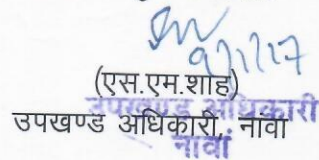 9/1/17
(एस.एम.शाह)
उपखण्ड अधिकारी
उपखण्ड अधिकारी, नांवा
नावां